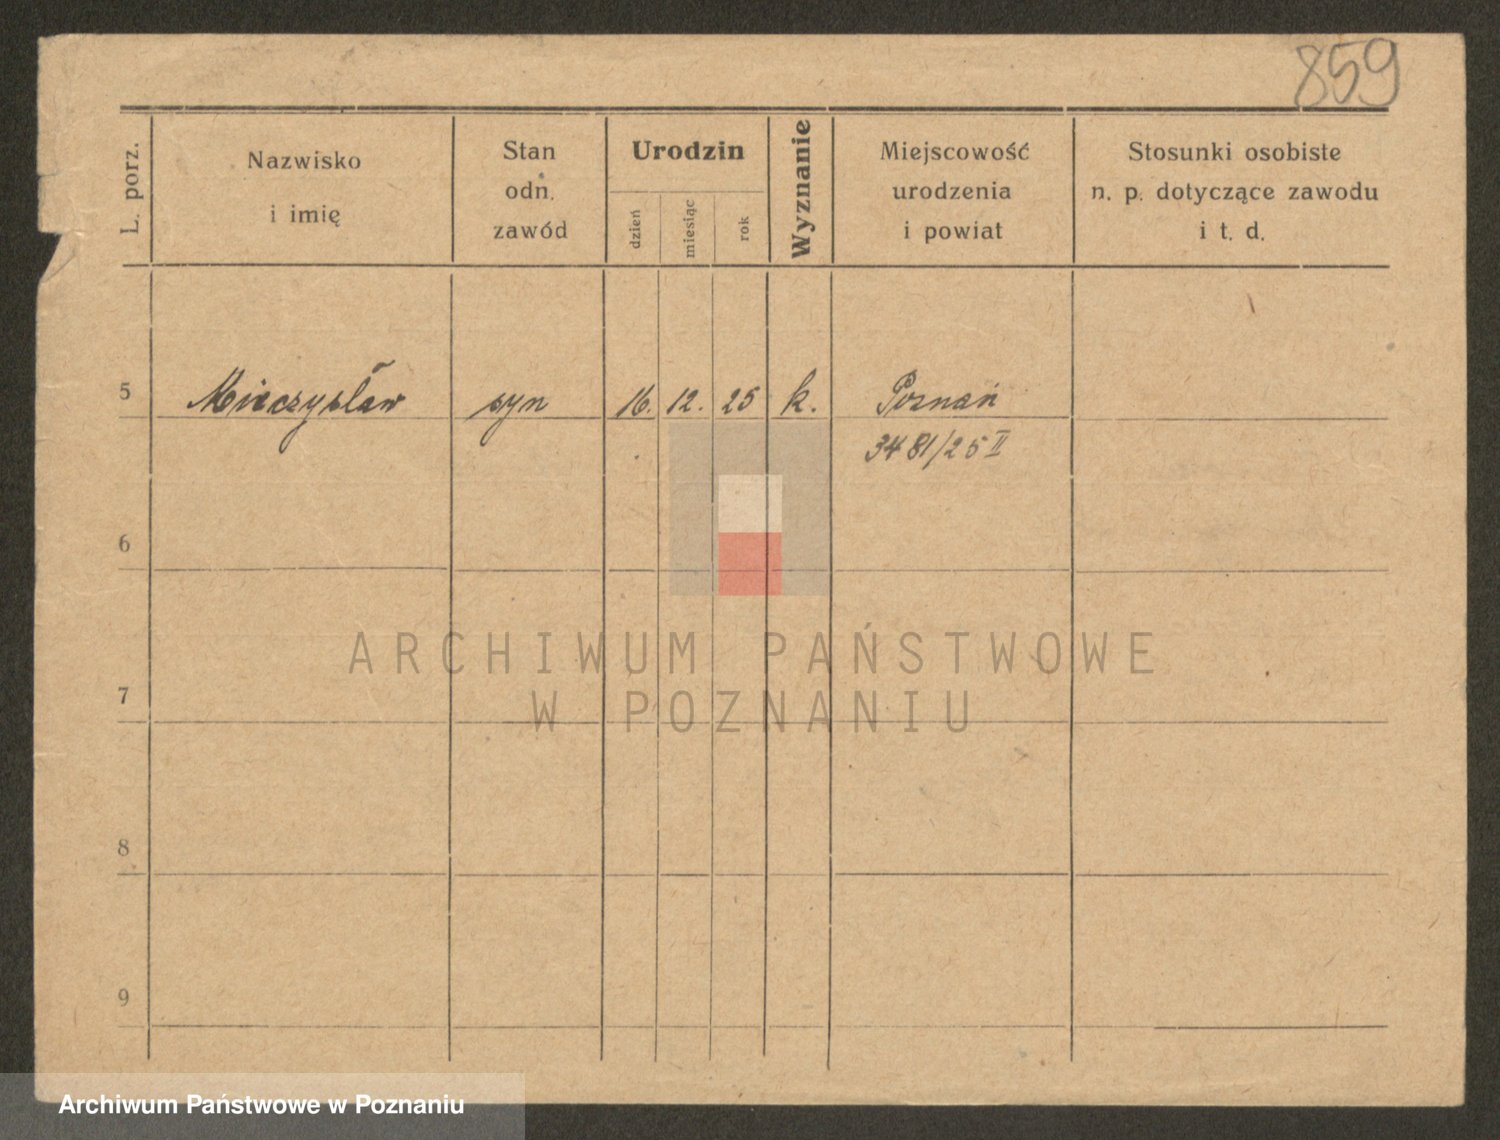 859
L. porz.
Nazwisko
i imię
Stan
odn.
zawód
Urodzin
dzień
miesiąc
rok
Wyznanie
Miejscowość
urodzenia
i powiat
Stosunki osobiste
n. p. dotyczące zawodu
i t. d.
5 Mieczysław syn 16. 12. 25 k. Poznań
3481/25 II
6
7
8
9
ARCHIWUM PAŃSTWOWE
W POZNANIU
Archiwum Państwowe w Poznaniu